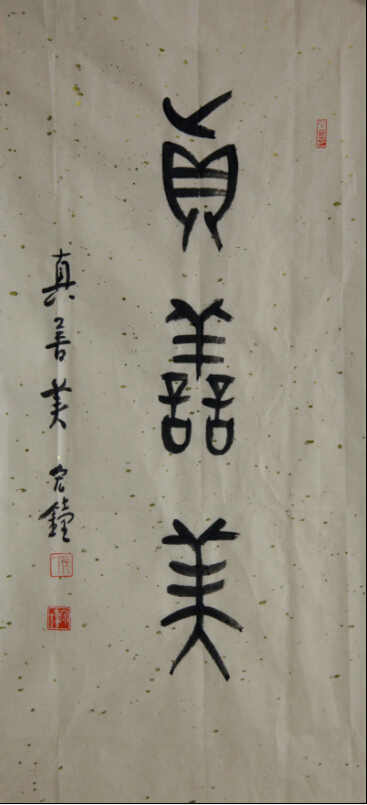 真善美
真善美 宏鐘